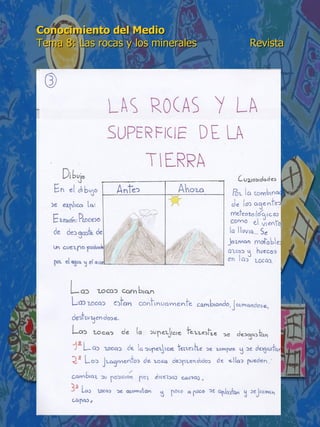 Conocimiento del Medio
Tema 8: Las rocas y los minerales Revista
3
LAS ROCAS Y LA
SUPERFICIE DE LA
TIERRA
Dibujo
En el dibujo
se explica la
Erosión: Proceso
de desgaste de
un cuerpo
por el agua y el
Antes
Ahora
Curiosidades
Por la
de los agentes
meteorológicos
como el viento
la lluvia... Se
forman
y huecos
en las rocas.
Las rocas cambian
Las rocas están continuamente cambiando, formándose,
destruyendose.
Las rocas de la superficie terrestre se desgastan
1ª Las rocas de la superficie terrestre se rompen y se desgastan
2ª Los fragmentos de roca desprendidos de ellas pueden
cambiar su posición por diversas causas.
3ª Las rocas se acumulan y poco a poco se aplastan y se forman
capas.